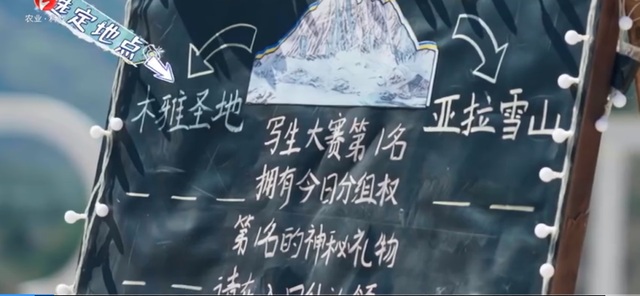 定地点
木雅圣地
亚拉雪山
写生大赛第1名
拥有今日分组权
第1名的神秘礼物